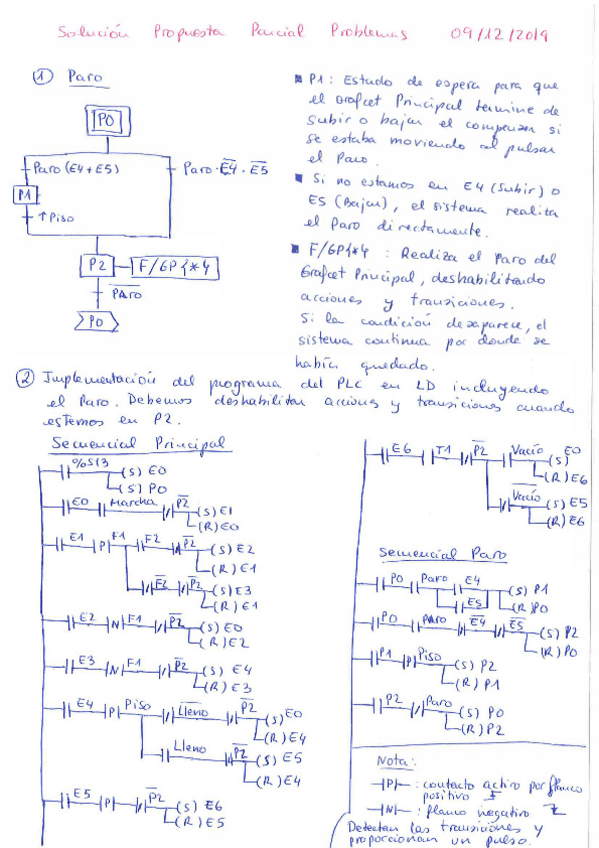 Solución Propuesta Parcial Problemas 09/12/2019
① Paro
P0
Paro (E4+E5)
Paro·E4·E5
P1
↑Piso
P2
F/GP{*4
PARO
P0
▪ P1: Estado de espera para que
el Grafcet Principal termine de
subir o bajar el compensa si
se estaba moviendo al pulsar
el Paro.
▪ Si no estamos en E4 (Subir) o
E5 (Bajar), el sistema realiza
el Paro directamente.
▪ F/GP{*4 : Realiza el Paro del
Grafcet Principal, deshabilitando
acciones y transiciones.
Si la condición desaparece, el
sistema continua por donde se
había quedado.
② Implementación del programa del PLC en LD incluyendo
el Paro. Debemos deshabilitar acciones y transiciones cuando
estemos en P2.
Secuencial Principal
%S13 (S) E0
(S) P0
E0 Marcha P2 (S) E1
(R) E0
E1 P F1 F2 P2 (S) E2
(R) E1
F2 P2 (S) E3
(R) E1
E2 N F1 P2 (S) E0
(R) E2
E3 N F1 P2 (S) E4
(R) E3
E4 P Piso Lleno P2 (S) E0
(R) E4
Lleno P2 (S) E5
(R) E4
E5 P P2 (S) E6
(R) E5
E6 T1 P2 Vacío (S) E0
(R) E6
Vacío (S) E5
(R) E6
Secuencial Paro
P0 Paro E4 (S) P1
E5 (R) P0
P0 PARO E4 E5 (S) P2
(R) P0
P1 P Piso (S) P2
(R) P1
P2 Paro (S) P0
(R) P2
Nota:
-|P|- : contacto activo por flanco
positivo
-|N|- : flanco negativo
Detectan las transiciones y
proporcionan un pulso.